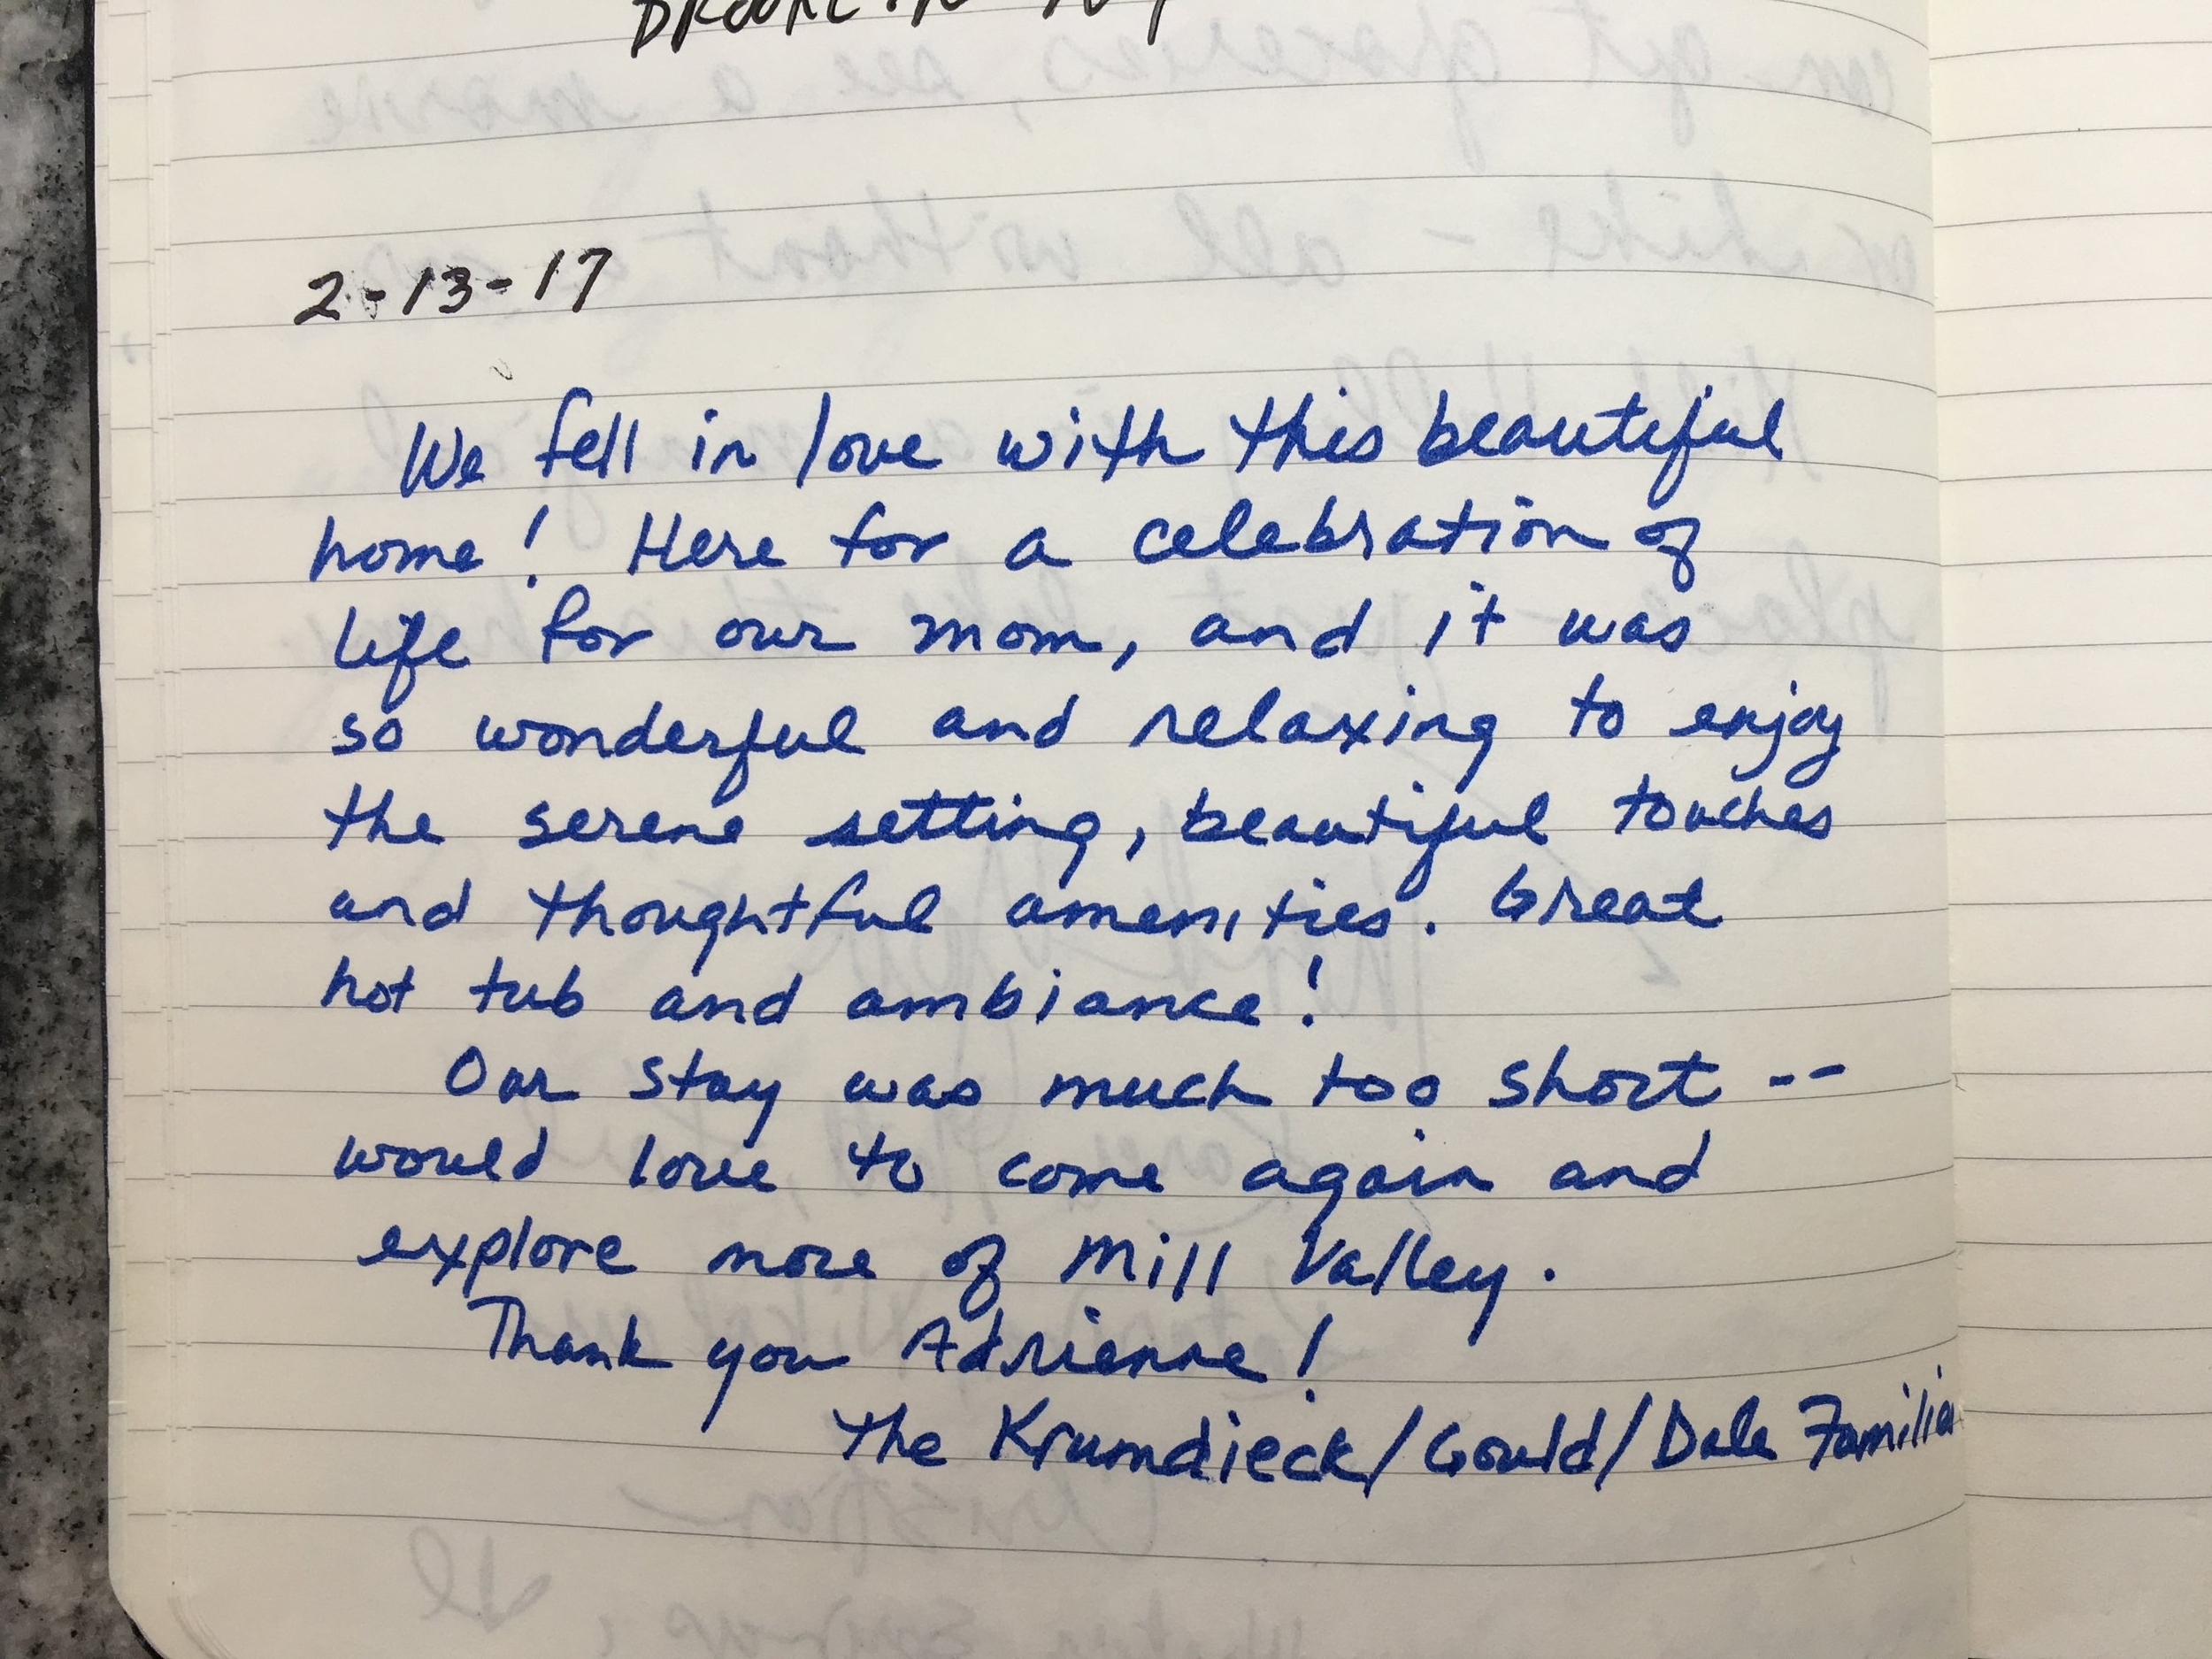 2-13-17
We fell in love with this beautiful
home! Here for a celebration of
life for our mom, and it was
so wonderful and relaxing to enjoy
the serene setting, beautiful touches
and thoughtful amenities. Great
hot tub and ambiance!
Our stay was much too short --
would love to come again and
explore more of Mill Valley.
Thank you Adrienne!
The Krumdieck/Gould/Dale Families